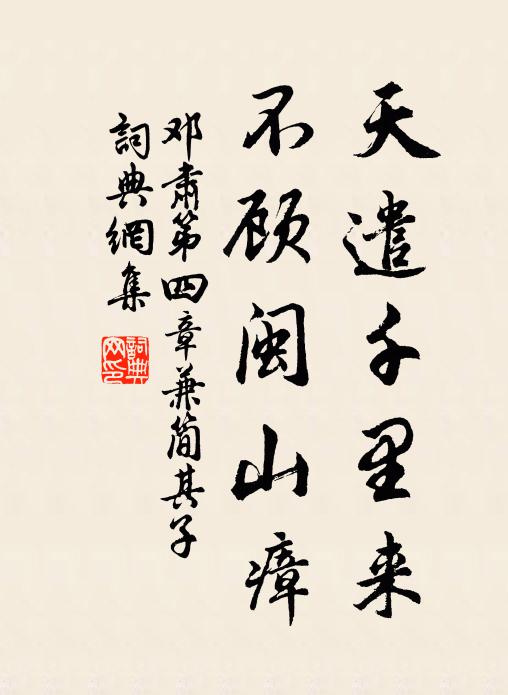 天遣千里来
不顾闽山瘴
邓肃第四章兼简其子
詞典網集
詞典网印